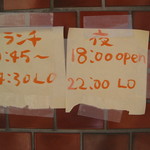 ランチ
:45～
:30 LO
夜
18:00 open
22:00 LO